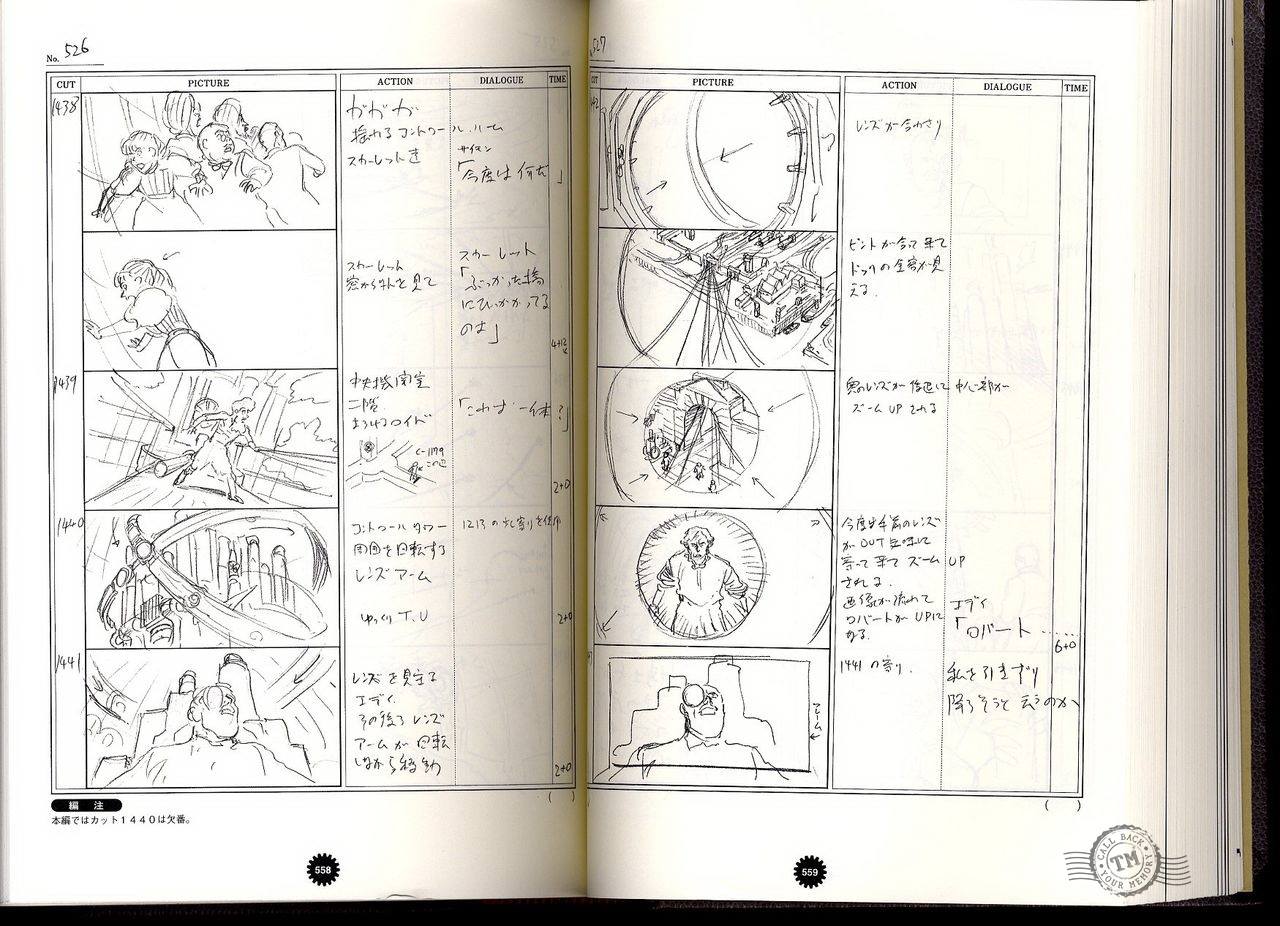 No. 526
CUT
PICTURE
ACTION
DIALOGUE
TIME
1438
ガガガ
揺れるコントロール・ルーム
スカーレット達
サイモン
「今度は何だ」
スカーレット
窓から外を見て
スカーレット
「ぶつかった橋
にひっかかってる
のよ」
4+12
1439
中央機関室
二階
ロイド
「これは一体?」
2+0
1440
コントロールタワー
周囲を回転する
レンズアーム
ゆっくりT.U
2+0
1441
レンズを見守る
エディ
その後ろレンズ
アームが回転
しながら移動
2+0
編 注
本編ではカット1440は欠番。
558
527
CUT
PICTURE
ACTION
DIALOGUE
TIME
レンズが合わさり
ピントが合って来て
ドックの全容が見
える。
奥のレンズが 中心部が
ズームUPされる
今度は手前のレンズ
がOUT
寄って来てズームUP
される。
画像が流れて
ロバートがUPに
なる。
エディ
「ロバート……
6+0
1441の寄り。
フレーム
私を引きずり
降ろそうと云うのか
559
CALL BACK
TM
YOUR MEMORY